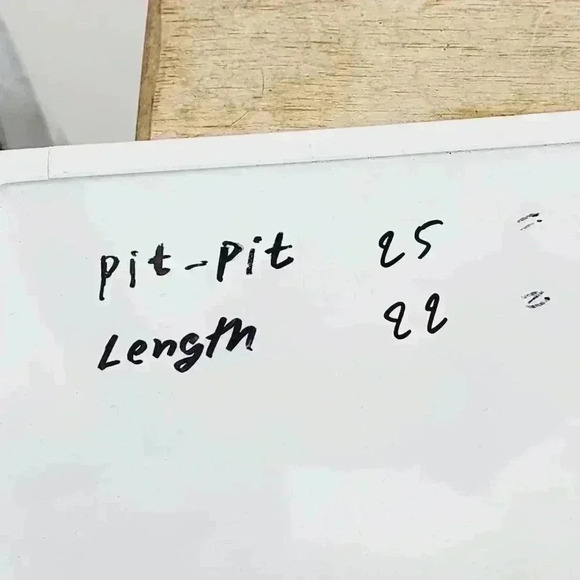 pit-pit 25 "
Length 22